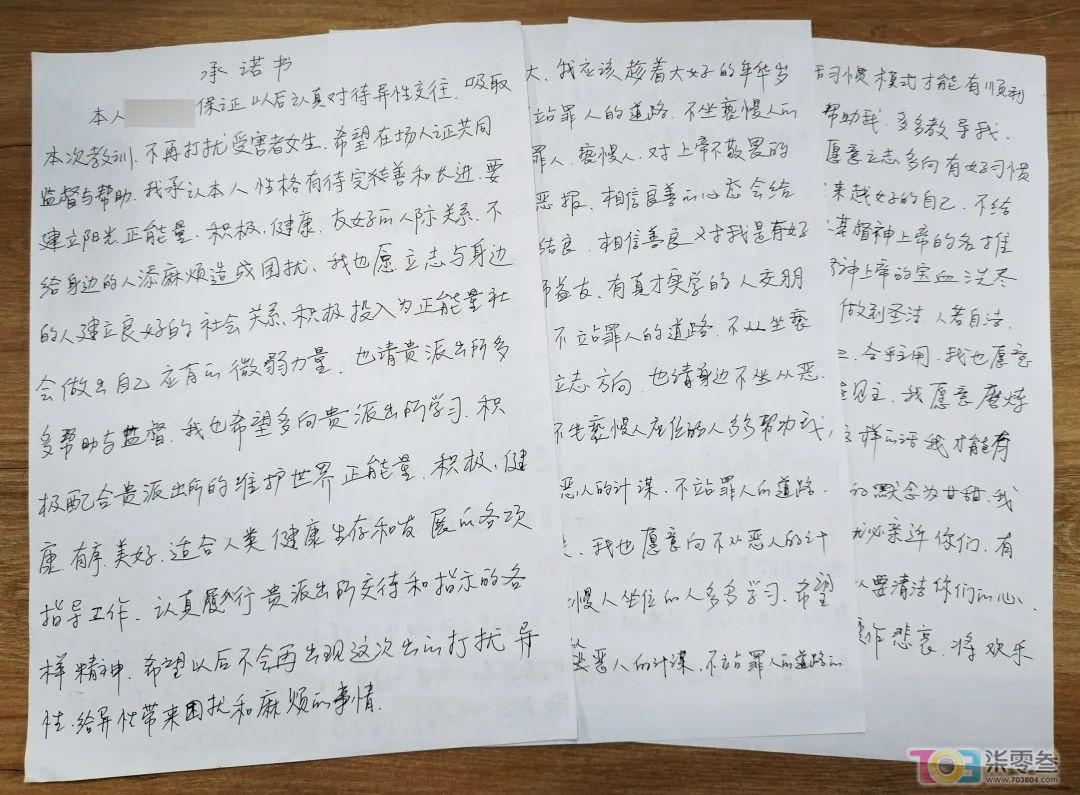 承诺书
本人 保证以后认真对待异性交往. 吸取
本次教训. 不再打扰受害者女生. 希望在场人证共同
监督与帮助. 我承认本人性格有待完善和长进. 要
建立阳光正能量. 积极. 健康. 友好的人际关系. 不
给身边的人添麻烦造成困扰. 我也愿立志与身边
的人建立良好的社会关系. 积极投入为正能量社
会做出自己应有的微弱力量. 也请贵派出所多
多帮助与监督. 我也希望多向贵派出所学习. 积
极配合贵派出所的维护世界正能量. 积极. 健
康. 有序. 美好. 适合人类健康生存和发展的各项
指导工作. 认真履行贵派出所交待和指示的各
样精神. 希望以后不会再出现这次出的打扰异
性. 给异性带来困扰和麻烦的事情.
大. 我应该趁着大好的年华岁
站罪人的道路. 不坐亵慢人的
罪人. 亵慢人. 对上帝不敬畏的
恶报. 相信良善的心态会给
结良. 相信善良又对我是有好
师益友. 有真才实学的人交朋
不站罪人的道路. 不坐亵
立志方向. 也请身边不坐从恶.
不坐亵慢人座位的人多多帮助我,
恶人的计谋. 不站罪人的道路.
我也愿意向不从恶人的计
慢人坐位的人多多学习. 希望
恶人的计谋. 不站罪人的道路的
习惯模式才能有顺利
帮助我. 多多教导我.
愿意立志多向有好习惯
来越好的自己. 不结
基督神上帝的名才准
神上帝的宝血洗尽
做到圣洁. 人若自洁.
合乎主用. 我也愿意
见主. 我愿意磨炼
这样的话我才能有
的默念为甘甜. 我
必亲近你们. 有
要清洁你们的心.
作悲哀. 将欢乐
703 柒零叁
www.703804.com